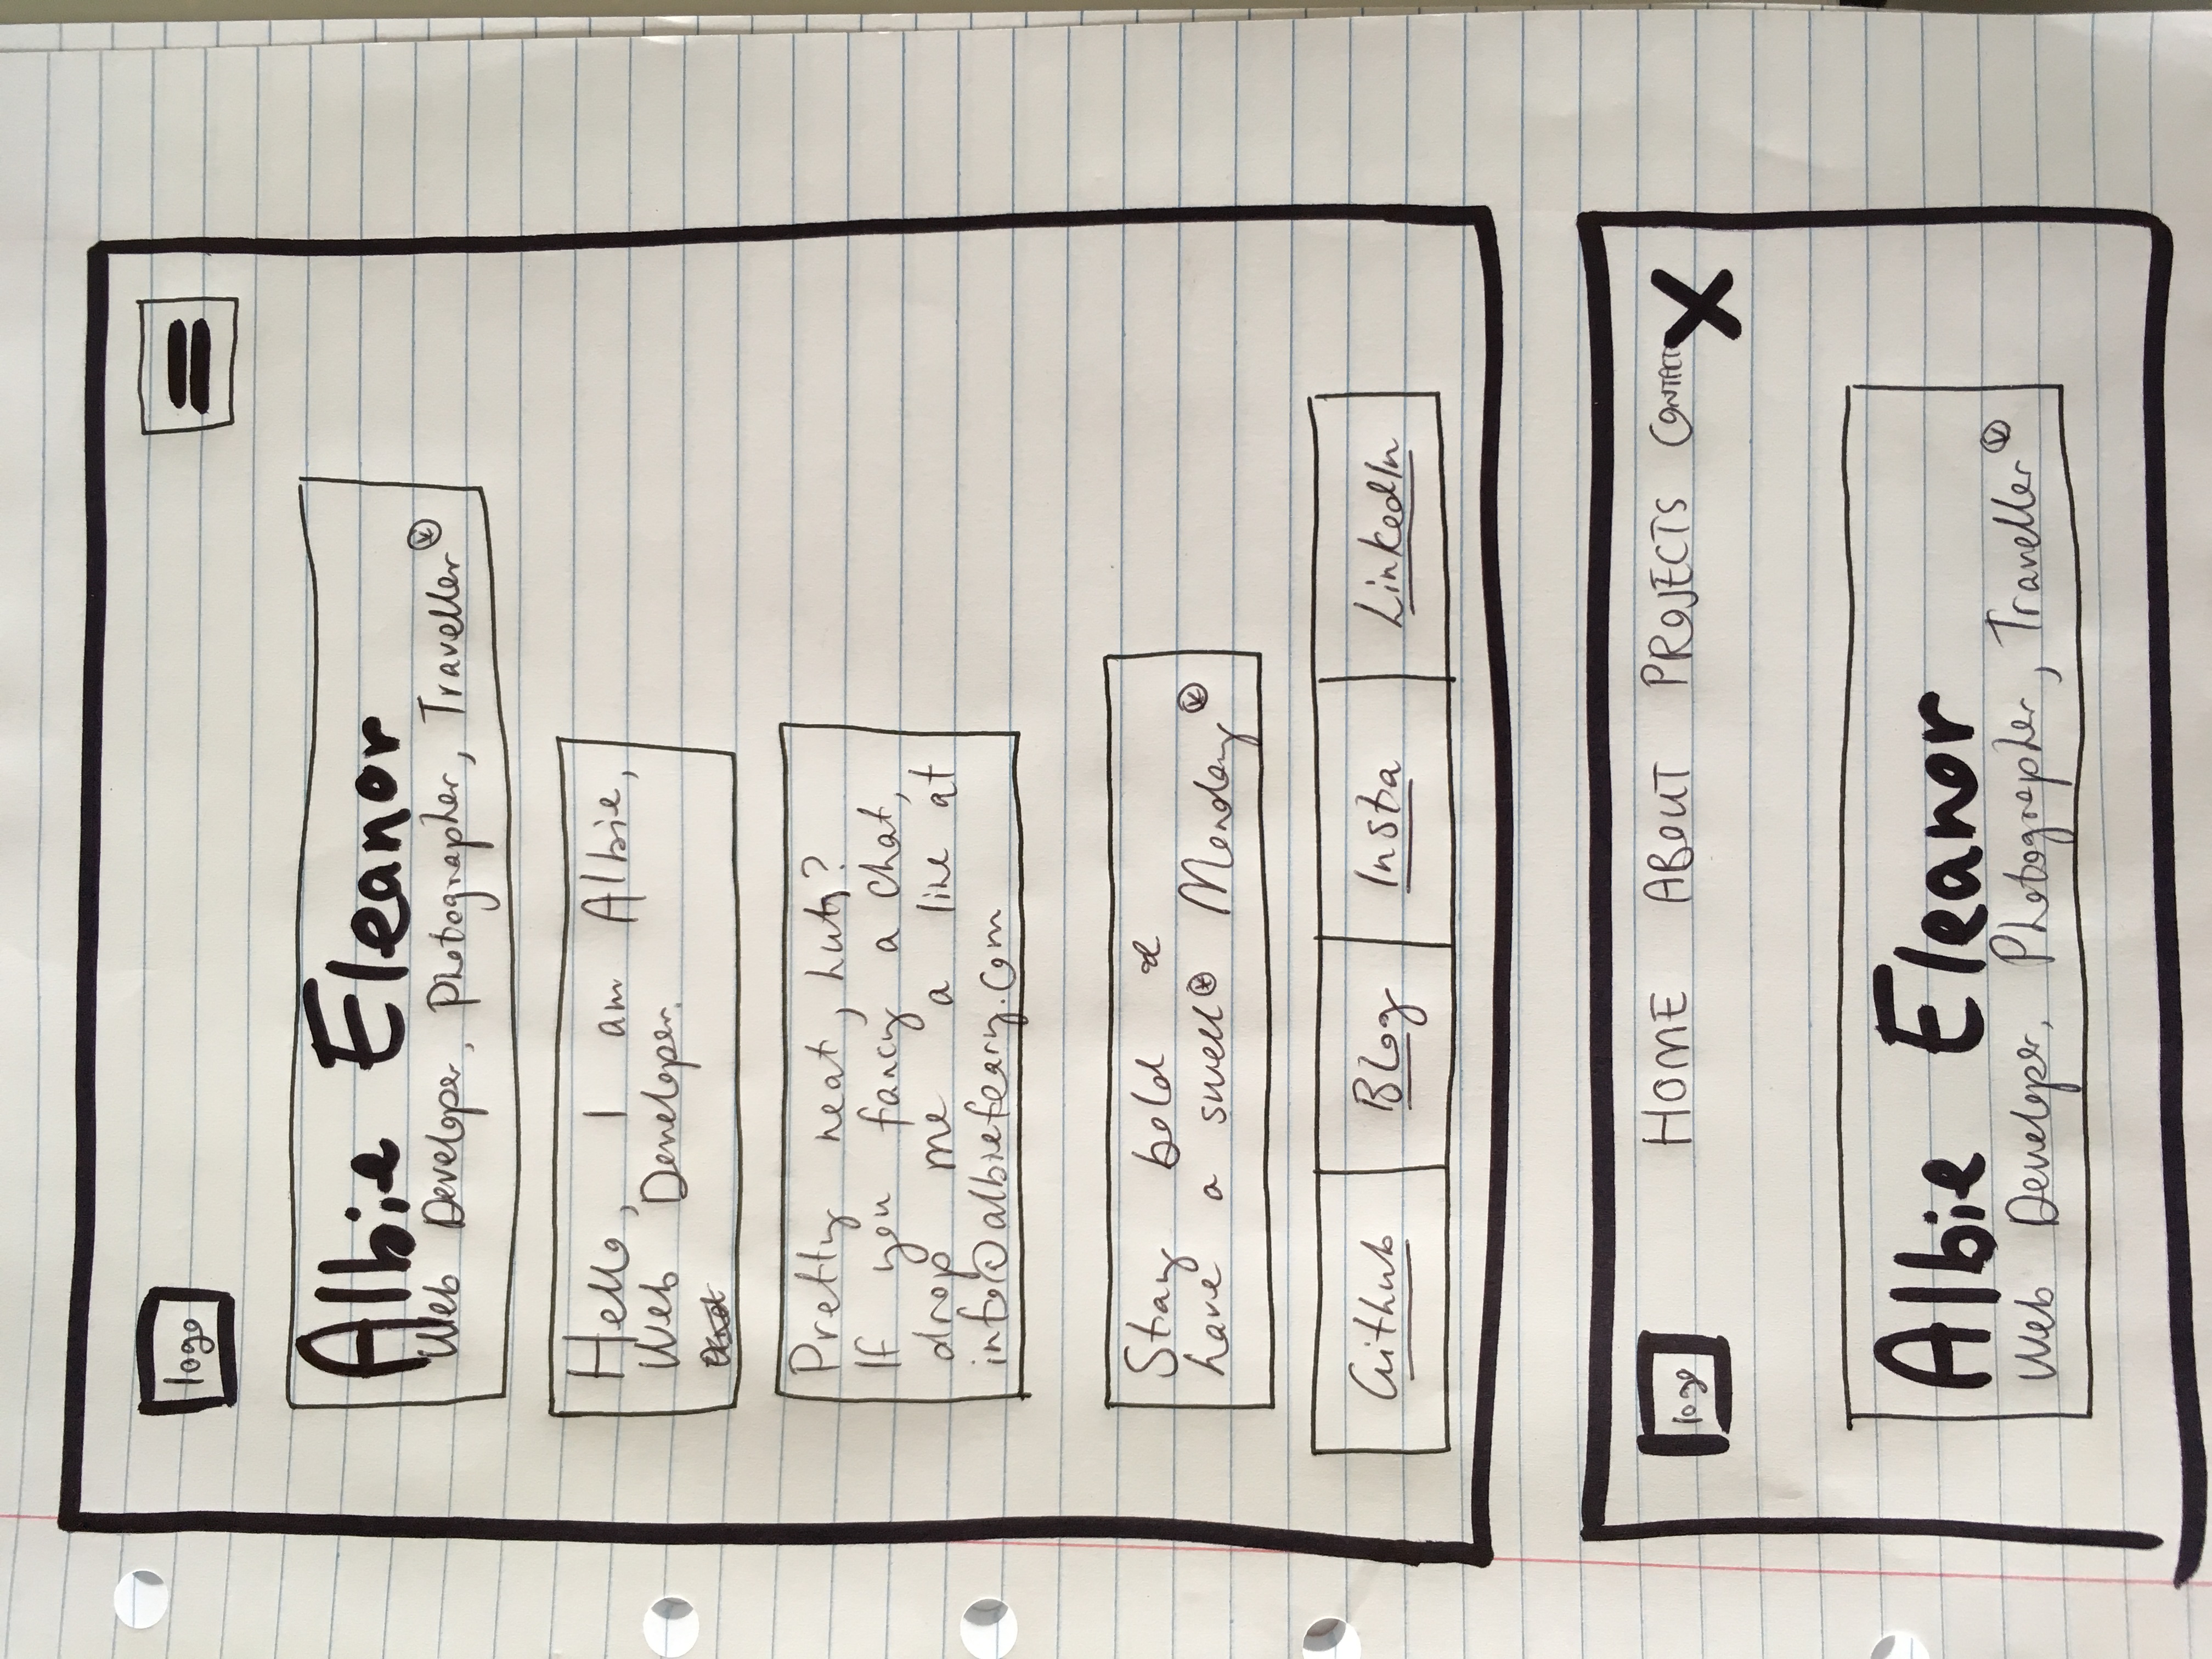 logo
Albie Eleanor
Web Developer, Photographer, Traveller
Hello, I am Albie,
Web Developer.
Pretty neat, huh?
If you fancy a chat,
drop me a line at
info@albiefeary.com
Stay bold &
have a swell* Monday
Github Blog Insta LinkedIn
logo HOME ABOUT PROJECTS CONTACT X
Albie Eleanor
Web Developer, Photographer, Traveller